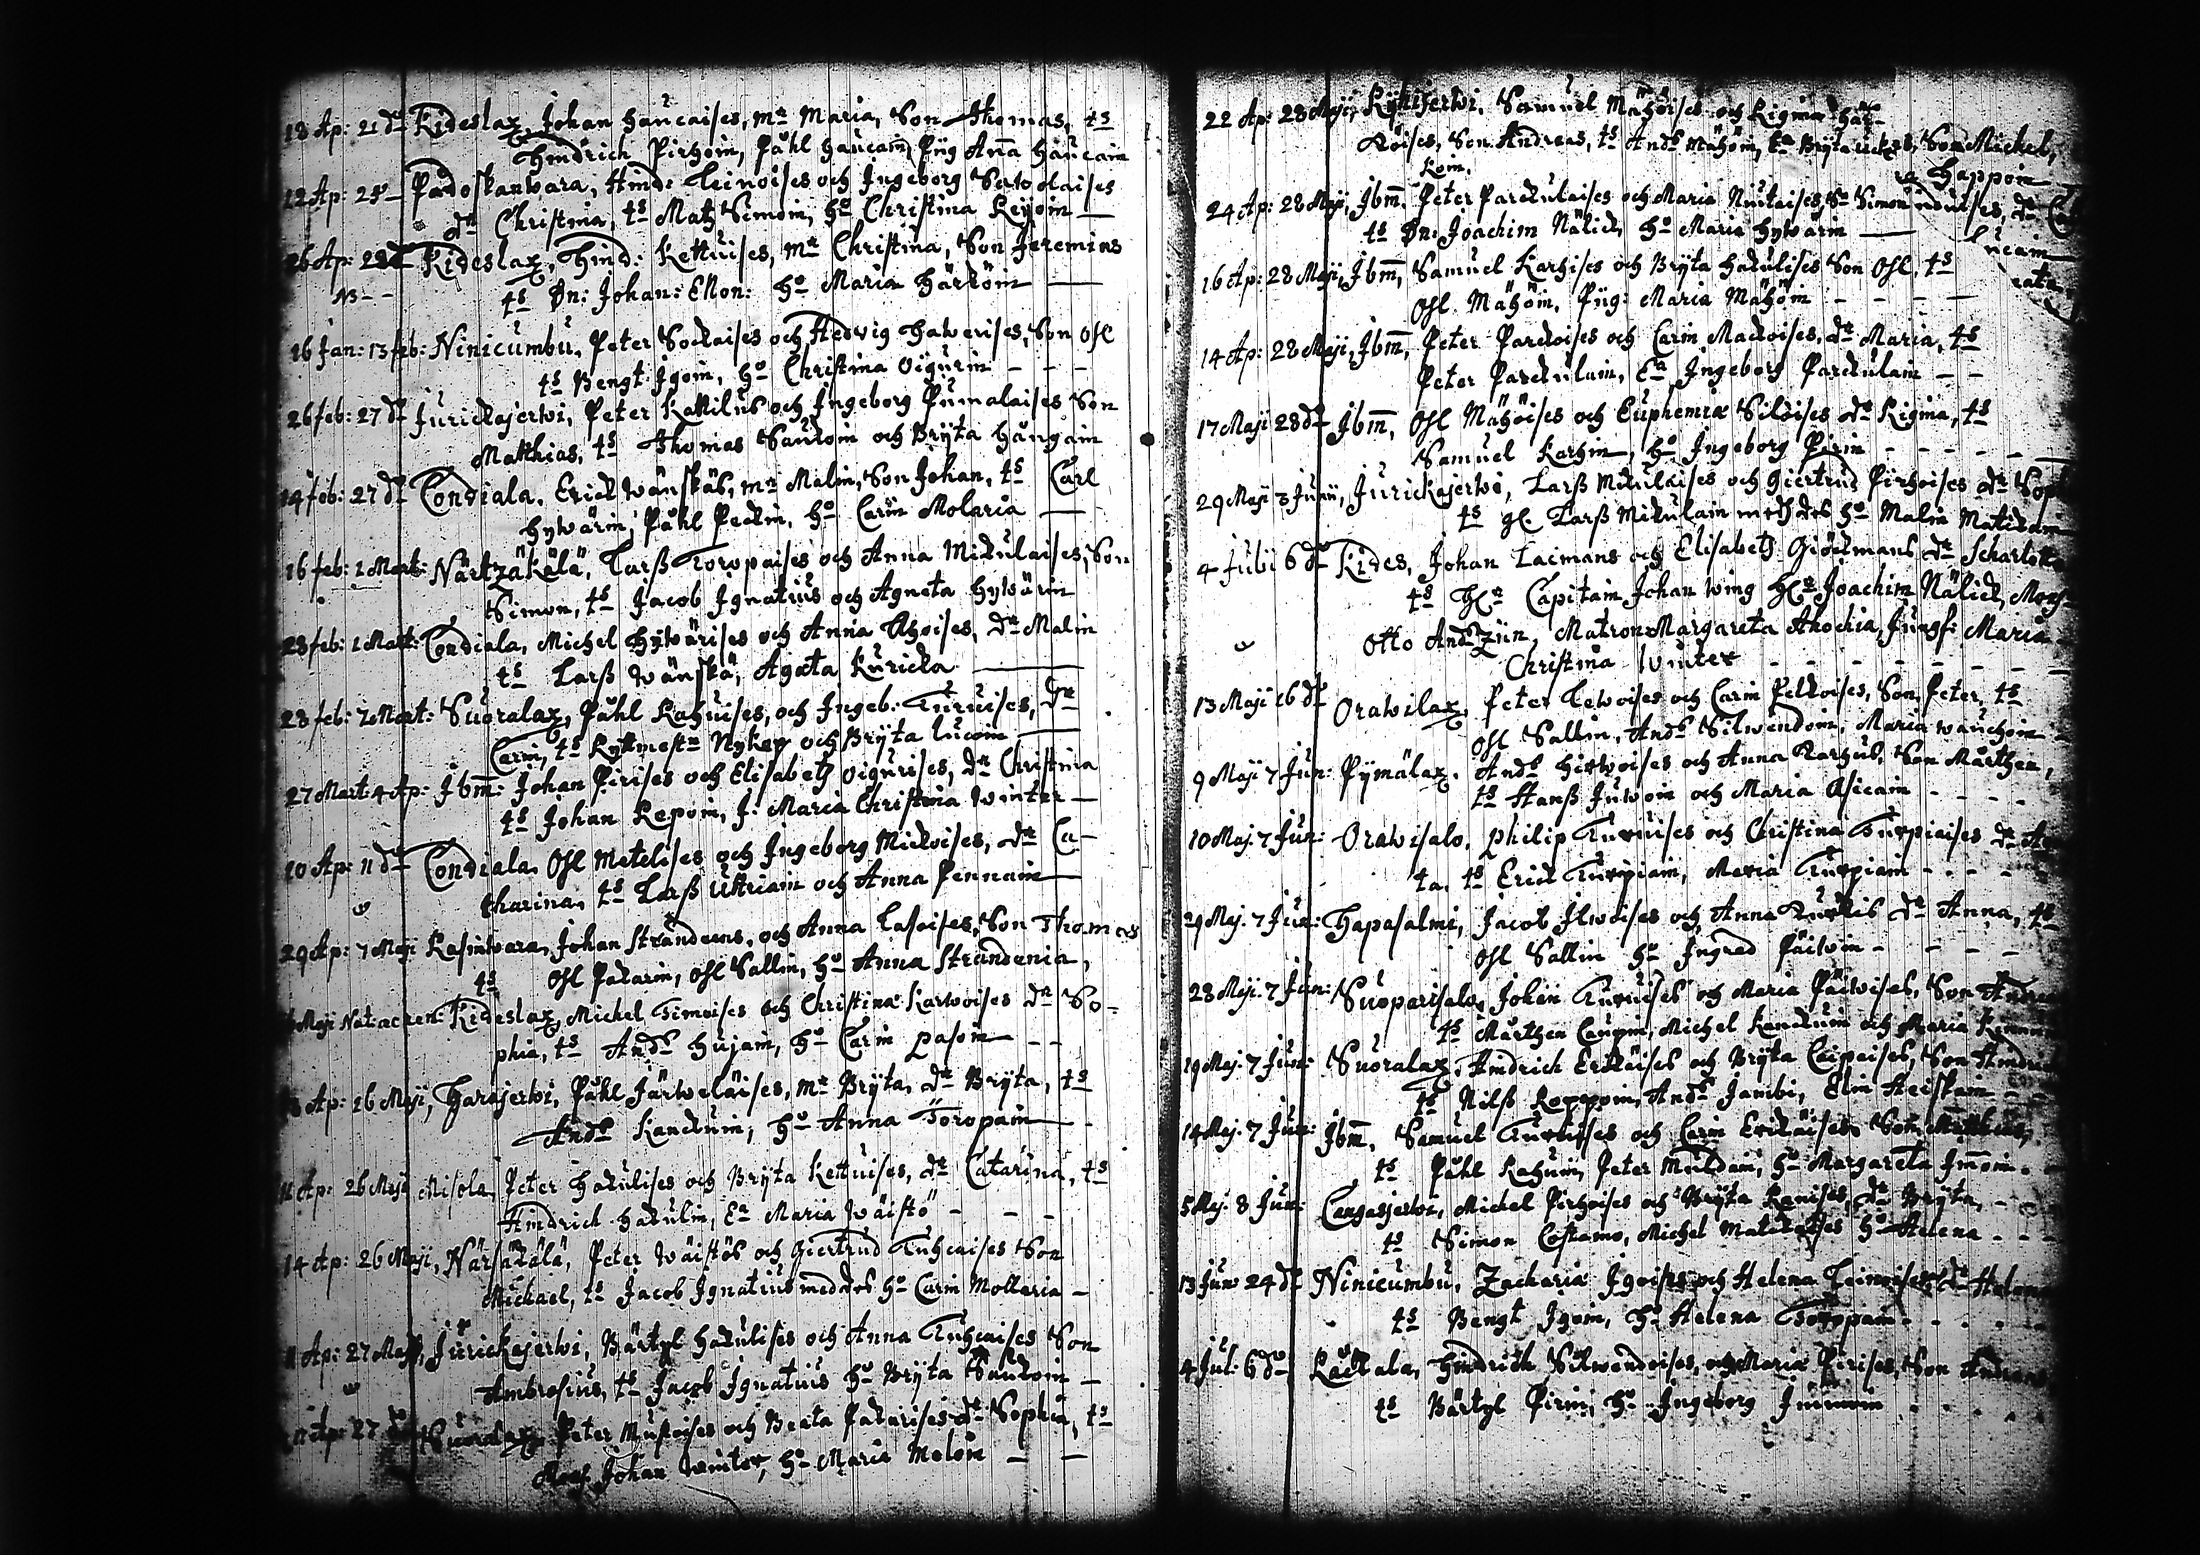 18 Ap: 21 dn Kideslax, Johan Haucaises, mr Maria, Son Thomas, ts
Hindrich Pirhoin, Påhl Haucain, Pijg Anna Haucain
22 Ap: 25 Padoskanwara, Hind: Teinoises och Ingeborg Sawolaises
dr Christina, ts Matz Simoin, ho Christina Reijoin
26 Ap: 28 dn Kideslax, Hind: Kettuises, mr Christina, Son Jeremias
NB ts Dn: Johan: Ellon: ho Maria Härköin
16 Jan: 13 feb: Ninicumbu, Peter Sockaises och Hedvig Hawerises, Son Ohl
ts Bengt Igoin, ho Christina Oigurin
26 feb: 27 dn Jurickajerwi, Peter Kattilus och Ingeborg Pumalaises Son
Matthias, ts Thomas Saukoin och Brÿta Hångain
14 feb: 27 dn Condiala, Erick Wänskäs, mr Malin, Son Johan, ts Carl
Hywärin, Påhl Peckin, ho Carin Molaria
16 feb: 1 Mart: Närtzäkälä, Larß Toropaises och Anna Mikulaises, Son
Simon, ts Jacob Ignatius och Agneta Hywärin
28 feb: 1 Mart: Condiala, Michel Hywärises och Anna Ahoises, dr Malin
ts Larß Wänskä, Agata Kuricka
28 feb: 7 Mart: Suoralax, Påhl Kahuises, och Ingeb: Turuises, dr
Carin, ts Ryttmestr Nykep och Brÿta lucoin
27 Mart: 4 Ap: Ibm: Johan Pirises och Elisabetz Oigurises, dr Christina
ts Johan Repoin, J: Maria Christina Winter
10 Ap: 11 dn Condiala, Ohl Metelises och Ingeborg Mickoises, dr Ca-
tharina, ts Larß Ukriain och Anna Pennain
29 Ap: 7 Maji Rasiwara, Johan Strandeens, och Anna Lasoises, Son Thomas
ts Ohl Pakarin, Ohl Sallin, ho Anna Strandenia,
Maji Nat: ac ren: Kideslax, Michel Timoises och Christina Karwoises dr So-
phia, ts Ands Hujain, ho Carin Pasoin
Ap: 26 Maji, Harajerwi, Påhl Järweläises, mr Brÿta, dr Brÿta, ts
Ands Kanckuin, ho Anna Toropain
Ap: 26 Maji Misola, Peter Hakulises och Brÿta Kettuises, dr Catarina, ts
Hindrich Hakulin, Er Maria Wäistö
14 Ap: 26 Maji, Närsäkälä, Peter Wäistös och Giertrud Tuhcaises Son
Michael, ts Jacob Ignatius med des ho Carin Molleria
Ap: 27 Maji, Jurickajerwi, Bärtyl Hakulises och Anna Tuhcaises Son
Ambrosius, ts Jacob Ignatius ho Brÿta Saukoin
Ap: 27 dn Suoralax, Peter Mustoises och Beata Pakarises dr Sophia, ts
Johan Winter, ho Maria Moloin
22 Ap: 28 Maji, Samuel Mähöises och Regina Här-
köises, Son Andreas, ts Ands Mähöin, Son Michel,
Koin. Happoin
24 Ap: 28 Maji, Ibm, Peter Parckulaises och Maria Nuutaises, Sn Simon
ts Dn: Joachim Nälick, ho Maria Hywärin
16 Ap: 28 Maji, Ibm, Samuel Karhises och Brÿta Hakulises Son Ohl, ts
Ohl Mähöin, Pijg: Maria Mähöin
14 Ap: 28 Maji, Ibm, Peter Parckoises och Carin Mackoises, dr Maria, ts
Peter Parckulain, Er Ingeborg Parckulain
17 Maji 28 dn Ibm, Ohl Mähöises och Euphemia Silöises dr Regina, ts
Samuel Karhin, ho Ingeborg Pirin
29 Maji 3 Junii, Jurickajerwi, Larß Mikulaises och Giertrud Pirhoises dr Soph
ts gl. Larß Mikulain med des ho Malin Matikain
4 Julii 6 dn Kides, Johan Lacmans och Elisabetz Giöckmans dr Scharlotta
ts Hr Capitain Johan Wing Hr Joachim Nälick, Mons
Otto And Ziin, Matron Margareta Ahochia, Jungf: Maria
Christina Winter
13 Maji 16 dn Orawilax, Peter Lewoises och Carin Pelkoises, Son Peter, ts
Ohl Sallin, Ands Silwendoin, Maria Wauchoin
9 Maji 7 Jun: Pÿmälax, Ands Hirwoises och Anna Karhus, Son Mårthen,
ts Hanß Juwoin och Maria Asicain
10 Maj. 7 Jun: Orawisalo, Philip Turuises och Christina Turpiaises dr
ta, ts Erick Turpiain, Maria Turpiain
29 Maj. 7 Jun: Hapasalmi, Jacob Ilwoises och Anna Kurkis dr Anna, ts
Ohl Sallin ho Ingred Päiwin
28 Maji. 7 Jun: Suoparisalo, Johan Turuises och Maria Päiwises, Son
ts Mårthen Caupin, Michel Kanckuin och Maria
19 Maj. 7 Jun: Suoralax, Hindrich Erckäises och Brÿta Leipaises, Son Hindrich
ts Nilß Roppoin, Ands Jambi, Elin Heiskain
14 Maj. 7 Jun: Ibm, Samuel Turuises och Carin Erckäises Son Matthias,
ts Påhl Kahuin, Peter Muldain, ho Margareta Immoin
5 Maj. 8 Jun: Cangasjerwi, Michel Pirhoises och Brÿta Ranises, dr Brÿta,
ts Simon Costamo, Michel Matikaises ho Helena
13 Juni 24 dn Ninicumbu, Zacharia Igoises och Helena Leinoises dr Helena
ts Bengt Igoin, ho Helena Toropain
4 Jul: 6 dn Kackala, Hindrich Silwendoises, och Maria Pirises, Son Andreas
ts Bärtyl Pirin, ho Ingeborg Immoin